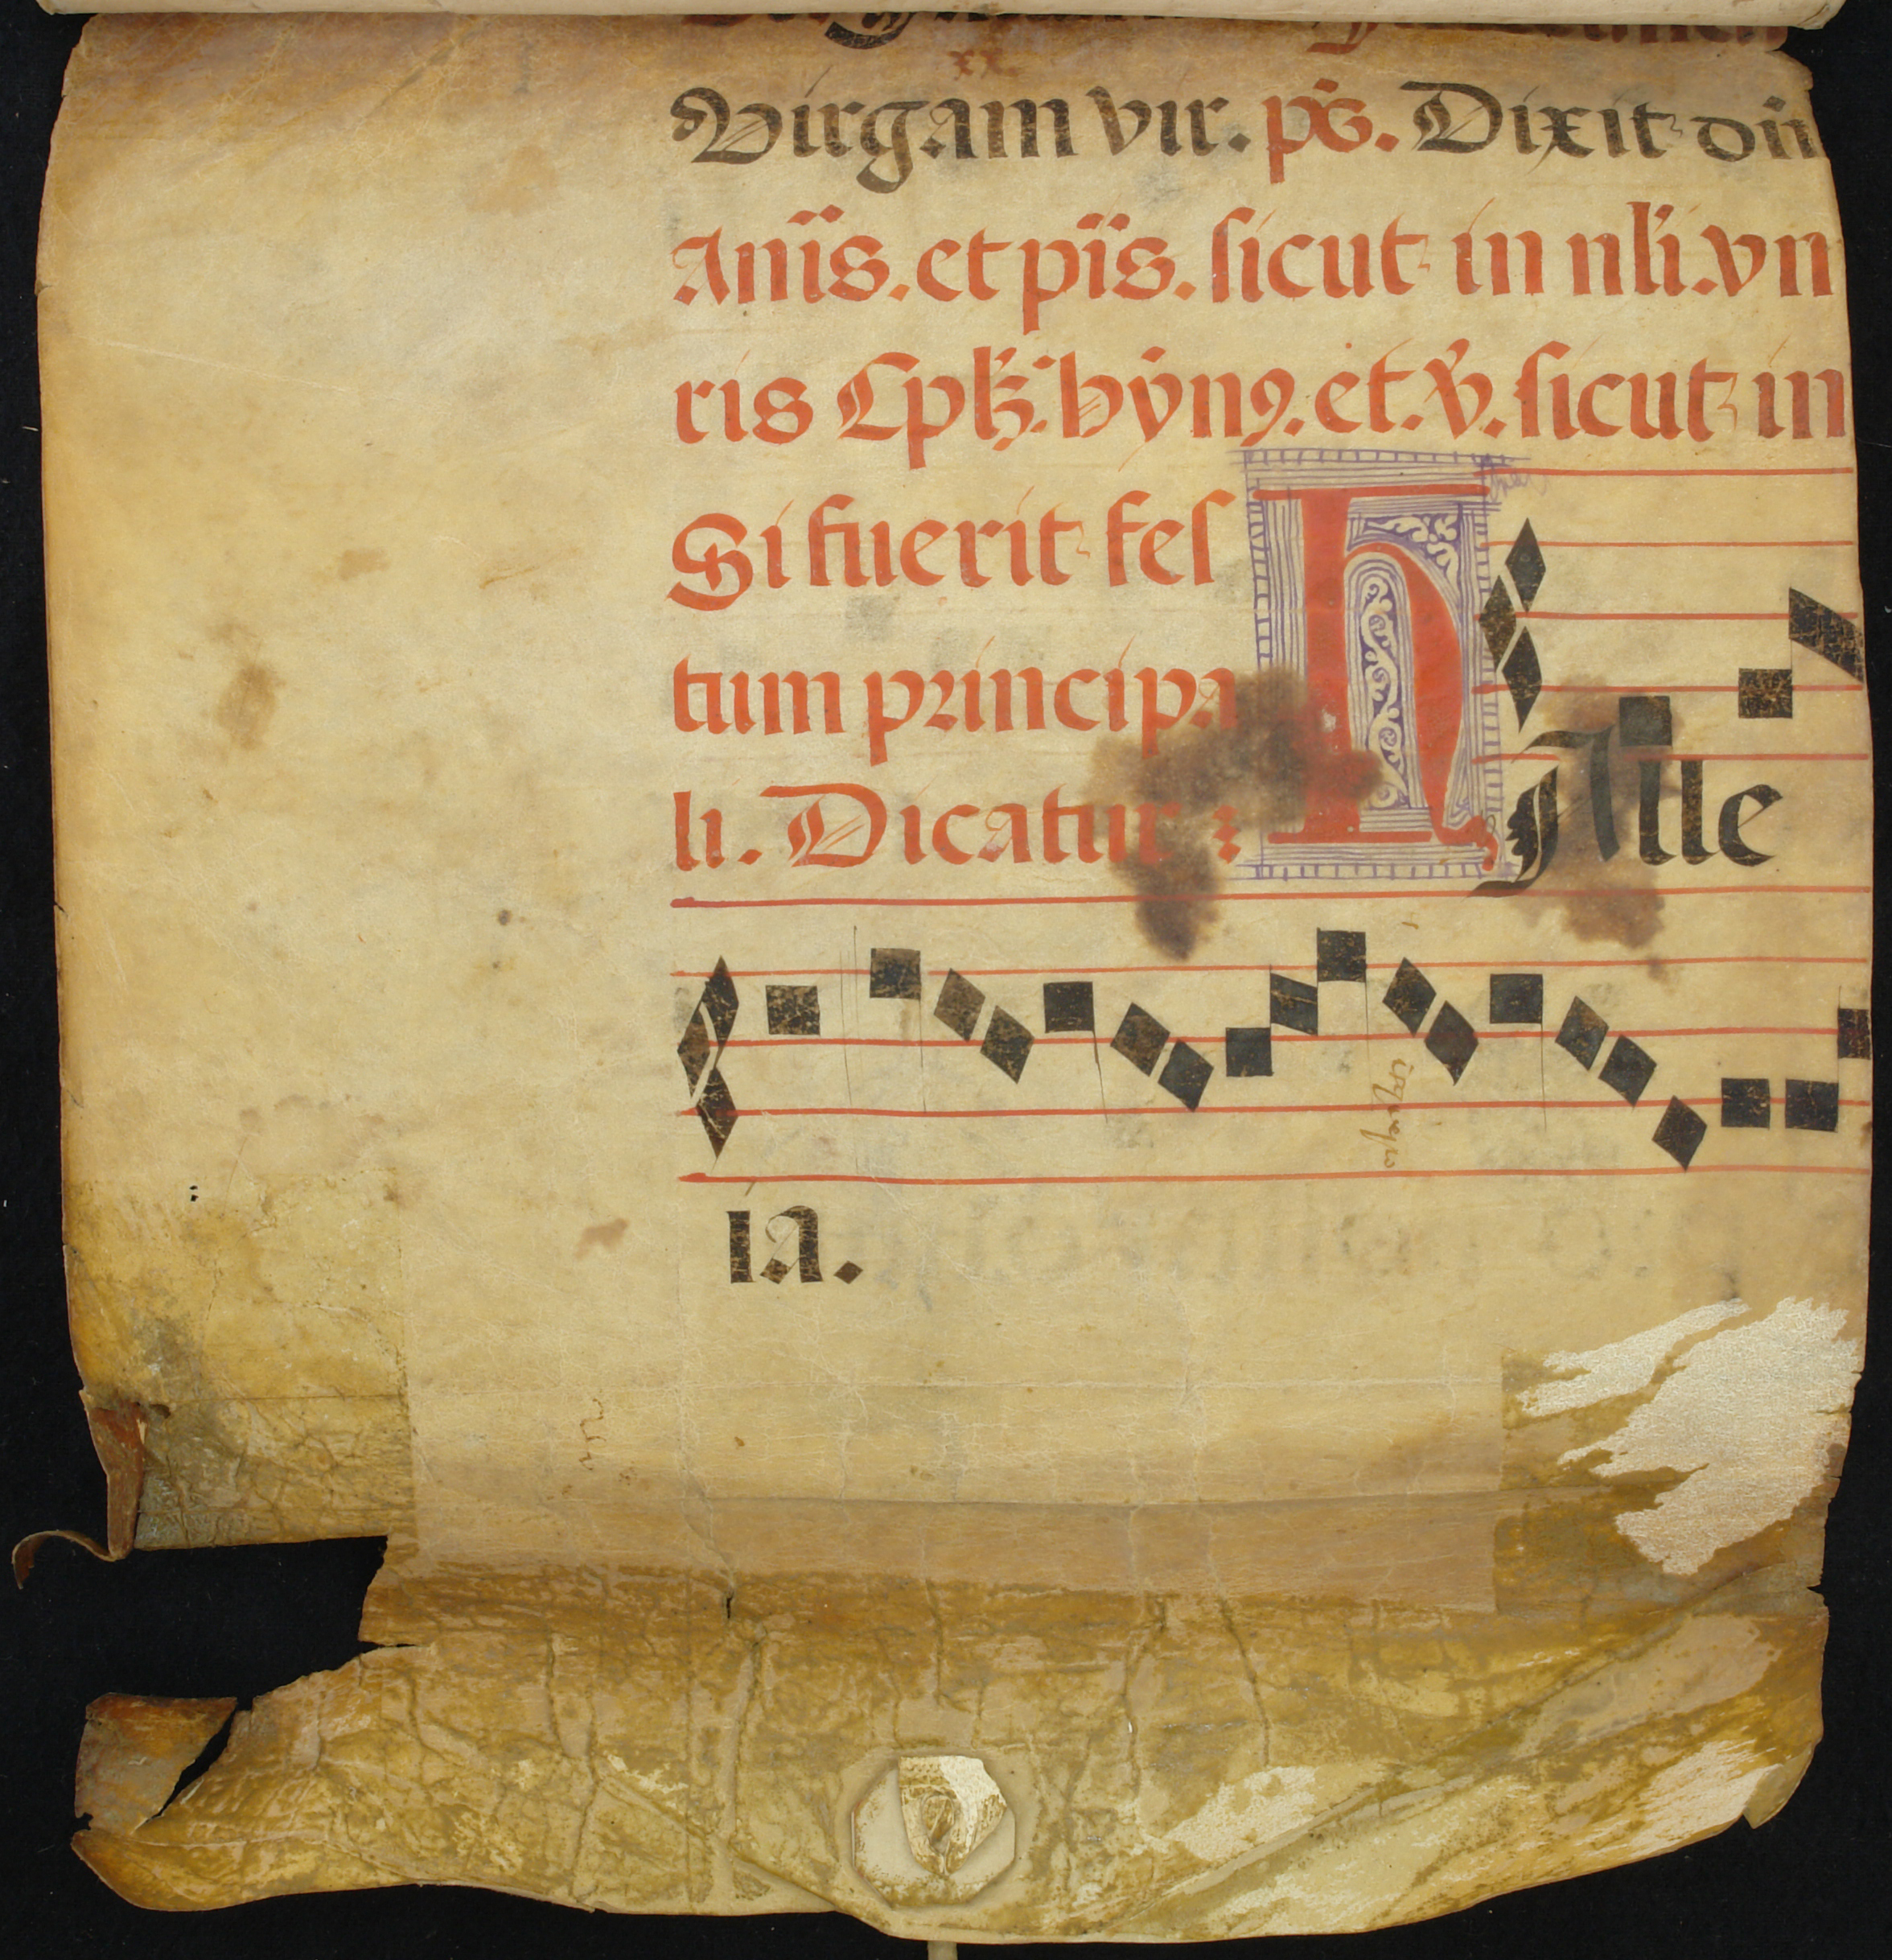 xx
Virgam vir. ps. Dixit dn̄
Aniis. et piis. sicut in nli. vn
ris Epk̄. hyn9. et. v. sicut in
Si fuerit fes
tum principa
li. Dicatur :
H Alle
ia.